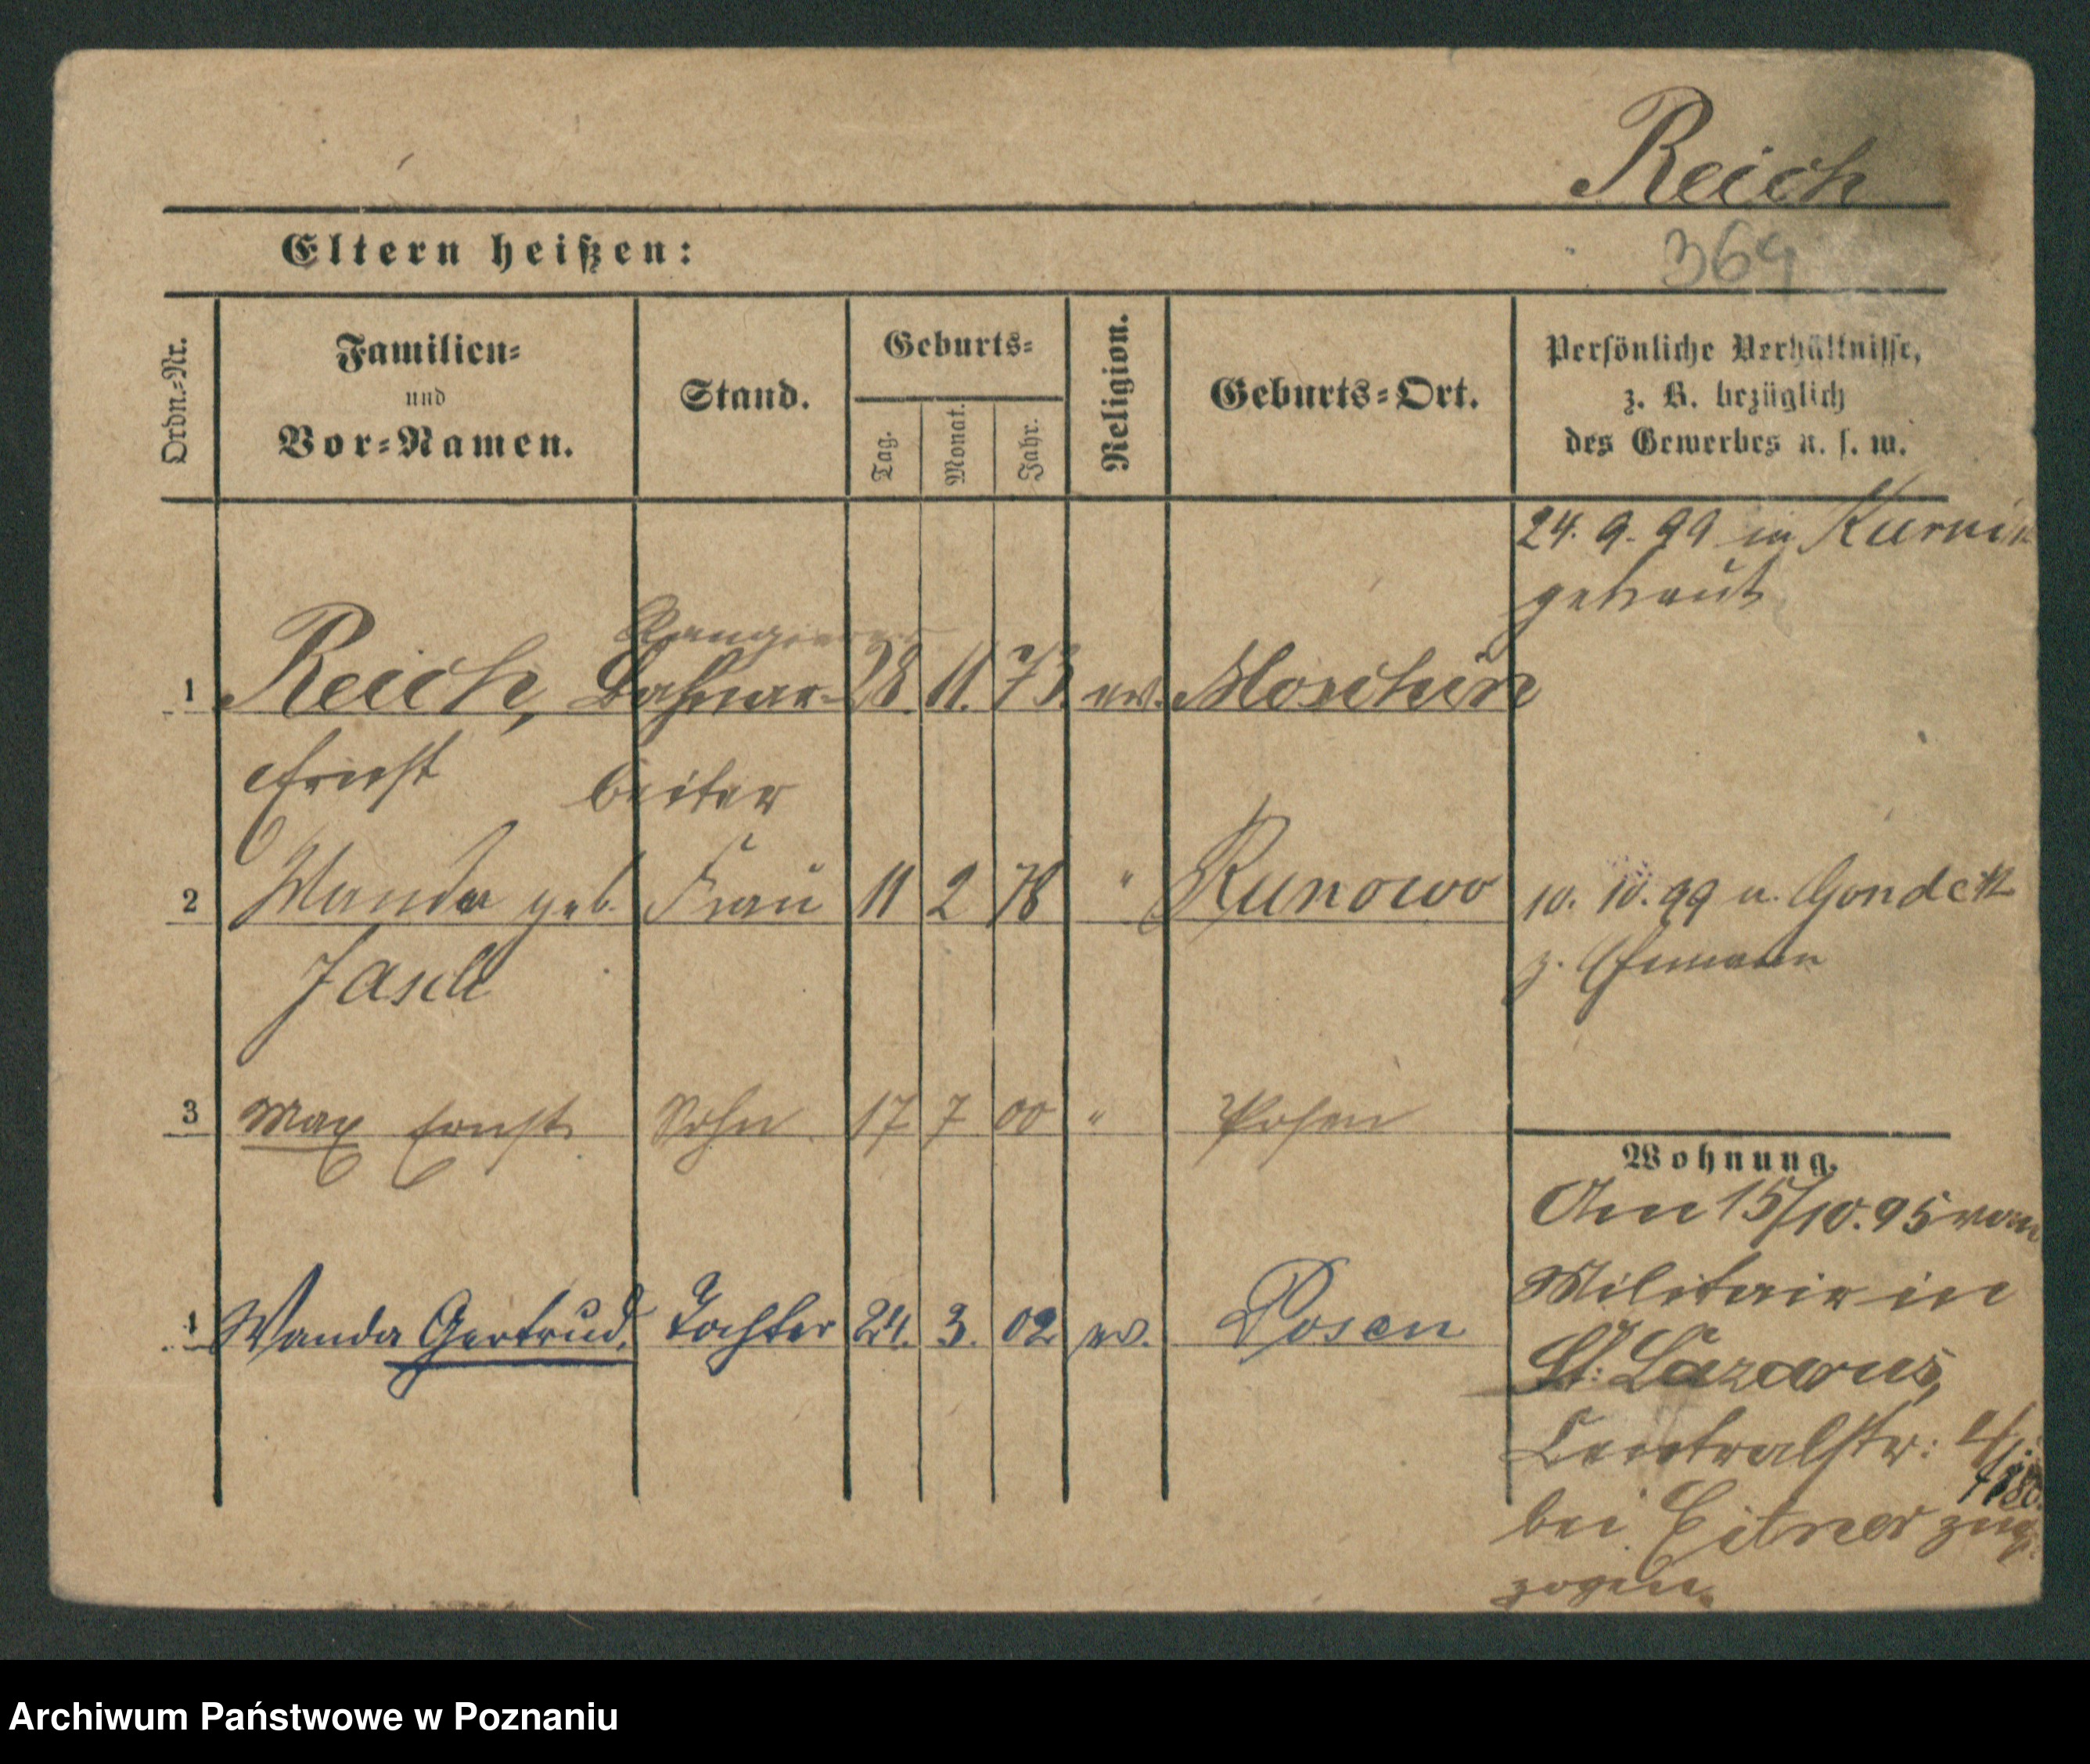 Reich
Eltern heißen:
369
Ordn.-Nr.
Familien-
und
Vor-Namen.
Stand.
Geburts-
Tag.
Monat.
Jahr.
Religion.
Geburts-Ort.
Persönliche Verhältnisse,
z. B. bezüglich
des Gewerbes u. s. w.
24. 9. 99 in Kurnik
getraut
Rangierer
1 Reich, Bahnar- 28. 11. 73. ev. Moschin
Ernst beiter
2 Wanda geb. Frau 11 2 78 " Runowo
Jasch
10. 10. 99 v. Gondek
z. Ehemann
3 Max Ernst Sohn 17 7 00 " Posen
Wohnung.
Am 15/10. 95 vom
Militair in
St. Lazarus,
Centralstr: 4/
bei Eitner zuge-
zogen.
4 Wanda Gertrud. Tochter 24. 3. 02 ev. Posen
Archiwum Państwowe w Poznaniu